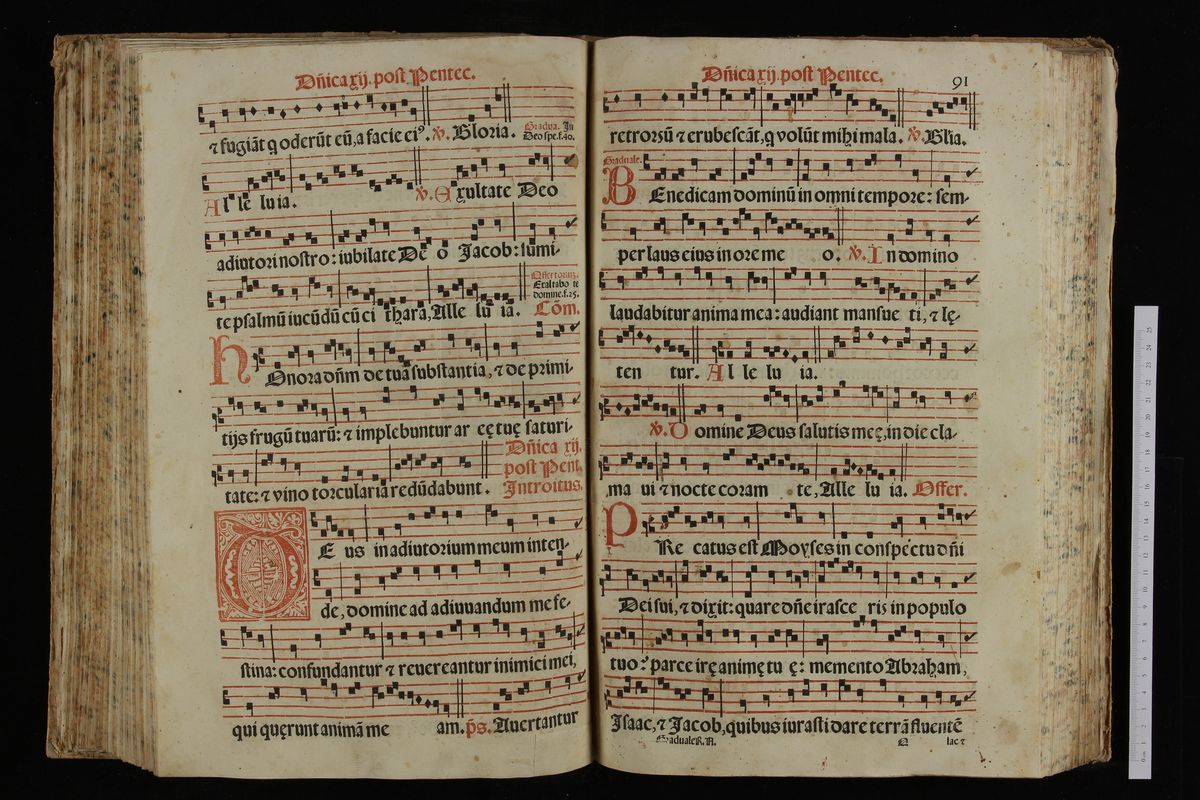 Dñica xij. post Pentec.
⁊ fugiãt q oderũt eũ, a facie eiꝰ. ℣. Gloria. Gradua. In
Deo spe. f. 40.
Al le lu ia. ℣. Exultate Deo
adiutori nostro: iubilate De o Jacob: sumi-
te psalmũ iucũdũ cũ ci thara, Alle lu ia. Offertoriũ.
Exaltabo te
domine. f. 25.
Cõm.
HOnora dñm de tua substantia, ⁊ de primi-
tijs frugũ tuarũ: ⁊ implebuntur ar eę tuę saturi-
tate: ⁊ vino torcularia redũdabunt. Dñica xij.
post Pent.
Introitus.
DEus in adiutorium meum inten-
de, domine ad adiuuandum me fe-
stina: confundantur ⁊ reuereantur inimici mei,
qui quęrunt animã me am. ps. Auertantur
Dñica xij. post Pentec. 91
retrorsũ ⁊ erubescãt, q volũt mihi mala. ℣. Glia.
Graduale.
BEnedicam dominũ in omni tempore: sem-
per laus eius in ore me o. ℣. In domino
laudabitur anima mea: audiant mansue ti, ⁊ lę-
ten tur. Al le lu ia.
℣. Domine Deus salutis meę, in die cla-
ma ui ⁊ nocte coram te, Alle lu ia. Offer.
PRe catus est Moyses in conspectu dñi
Dei sui, ⁊ dixit: quare dñe irasce ris in populo
tuo? parce irę animę tu ę: memento Abraham,
Isaac, ⁊ Jacob, quibus iurasti dare terrã fluentẽ
Graduale R. N. lac ⁊